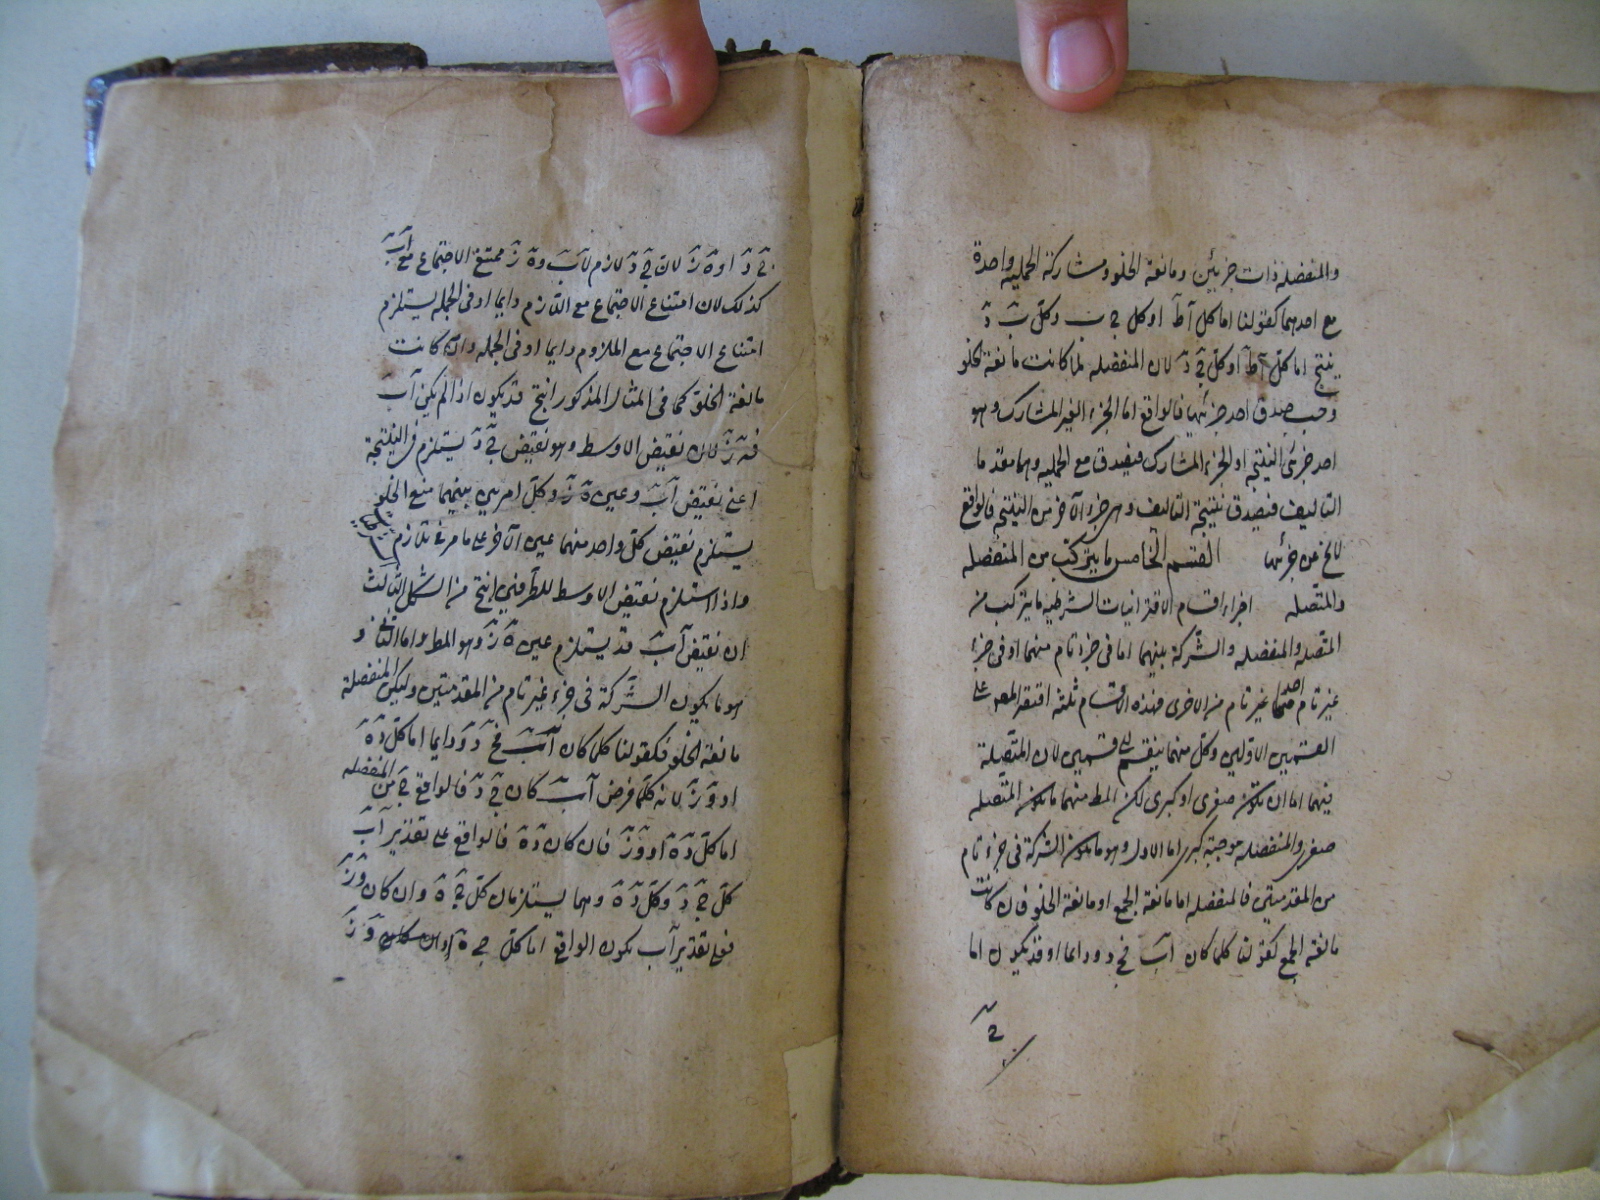 والمنفصلة ذات جزئين ومانعة الخلو ومشاركة الحملية واحدة
مع احدهما كقولنا اما كل آط او كل ج ب وكل ب د
ينتج اما كل آط او كل ج د لان المنفصله لما كانت مانعة الخلو
وجب صدق احد جزئيها فالواقع اما الجزء الغير المشارك وهو
احد جزئي النتيجة او الجزء المشارك فيصدق مع الحمليه وهما مقدما
التاليف فيصدق نتيجة التاليف وهي جزء الآخر من النتيجة فالواقع
لا يخ عن جزئيها القسم الخامس ما يتركب من المنفصله
والمتصله اجزاء اقسام الاقترانيات الشرطيه ما يتركب من
المتصله والمنفصله والشركة بينهما اما في جزء تام منهما او في جزء
غير تام منهما احدهما غير تام من الاخرى فهذه الاقسام ثلثة اقتصر المصه على
القسمين الاولين وكل منهما ينقسم الى قسمين لان المتصلة
فيهما اما ان يكون صغرى او كبرى لكن المط منهما ما يكون المتصله
صغرى والمنفصله موجبة كبرى اما الاول وهو ما يكون الشركة في جزء تام
من المقدمتين فالمنفصله اما مانعة الجمع او مانعة الخلو فان كانت
مانعة الجمع كقولنا كلما كان آب فج د ودايما او قد يكون اما
ج د
ج د او ه ز لان ج د لازم لآب وه ز ممتنع الاجتماع مع آب
كذلك لان امتناع الاجتماع مع اللازم دايما او في الجمله يستلزم
امتناع الاجتماع مع الملزوم دايما او في الجمله وان كانت
مانعة الخلو كما في المثال المذكور انتج قد يكون اذا لم يكن آب
فه ز فان نقيض الاوسط وهو نقيض ج د يستلزم في النتيجة
اعني نقيض آب وعين ه ز وكل امرين بينهما منع الخلو
يستلزم نقيض كل واحد منهما عين الآخر على ما مر في تلازم
واذا استلزم نقيض الاوسط للطرفين انتج من الشكل الثالث
ان نقيض آب قد يستلزم عين ه ز وهو المط واما الثاني و
هو ما يكون الشركة في جزء غير تام من المقدمتين وليكن المنفصلة
مانعة الخلو فكقولنا كلما كان آب فج د ودايما اما كل د ه
او و ز لانه كلما فرض آب كان ج د فالواقع ج من المنفصله
اما كل د ه او و ز فان كان د ه فالواقع على تقدير آب
كل ج د وكل د ه وهما يستلزمان كل ج ه وان كان و ز
فعلى تقدير آب يكون الواقع اما كل ج ه او و ز